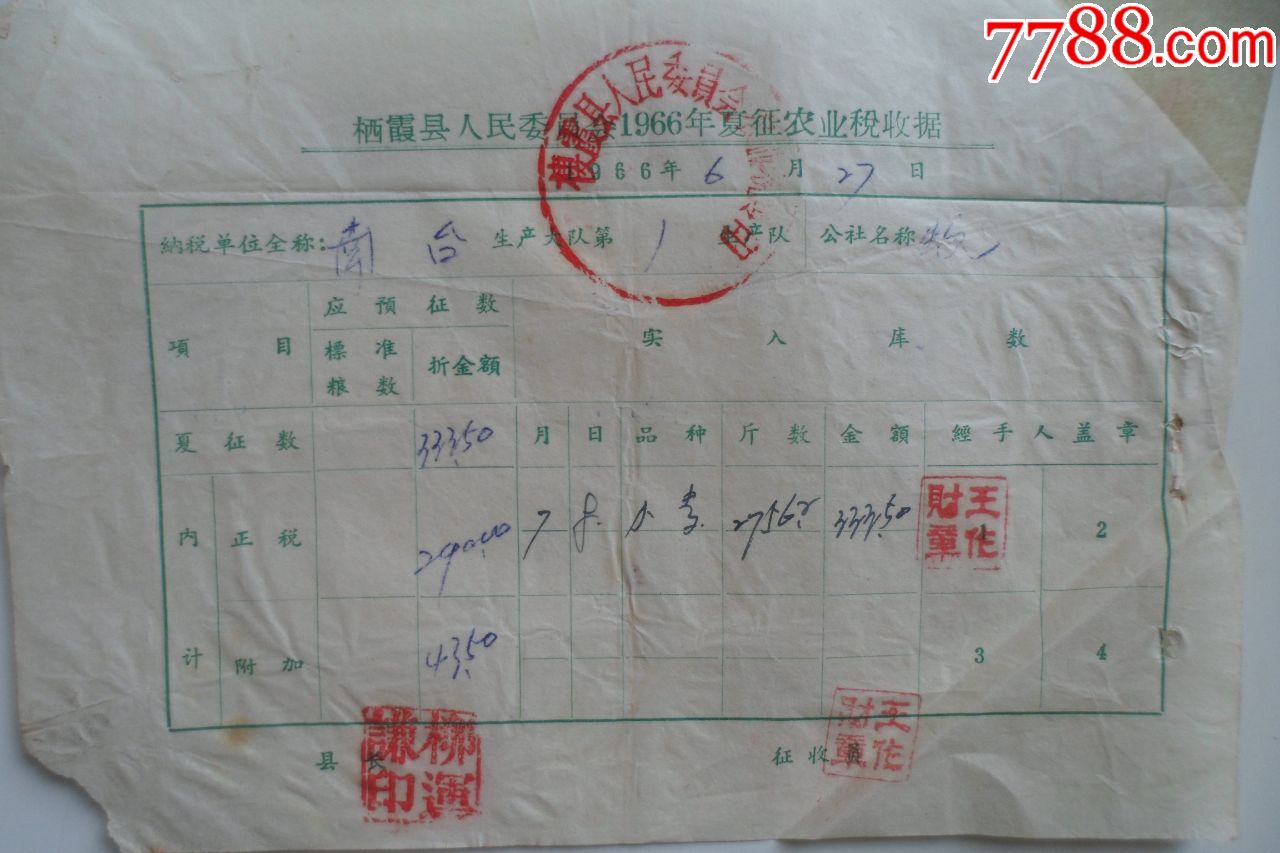 7788.com
栖霞县人民委员会
栖霞县人民委员会1966年夏征农业稅收据
1966年 6 月 27 日
納税单位全称: 南台 生产大队第 1 生产队 公社名称
項目 应预征数 实入库数
標准粮数 折金額
夏征数 333.50 月 日 品种 斤数 金額 經手人盖章
内计 正税 290.00 7 8 小麦 2756 333.50 王作財章 1 2
附加 43.50 3 4
县长 柳運謙印 征收員 王作財章